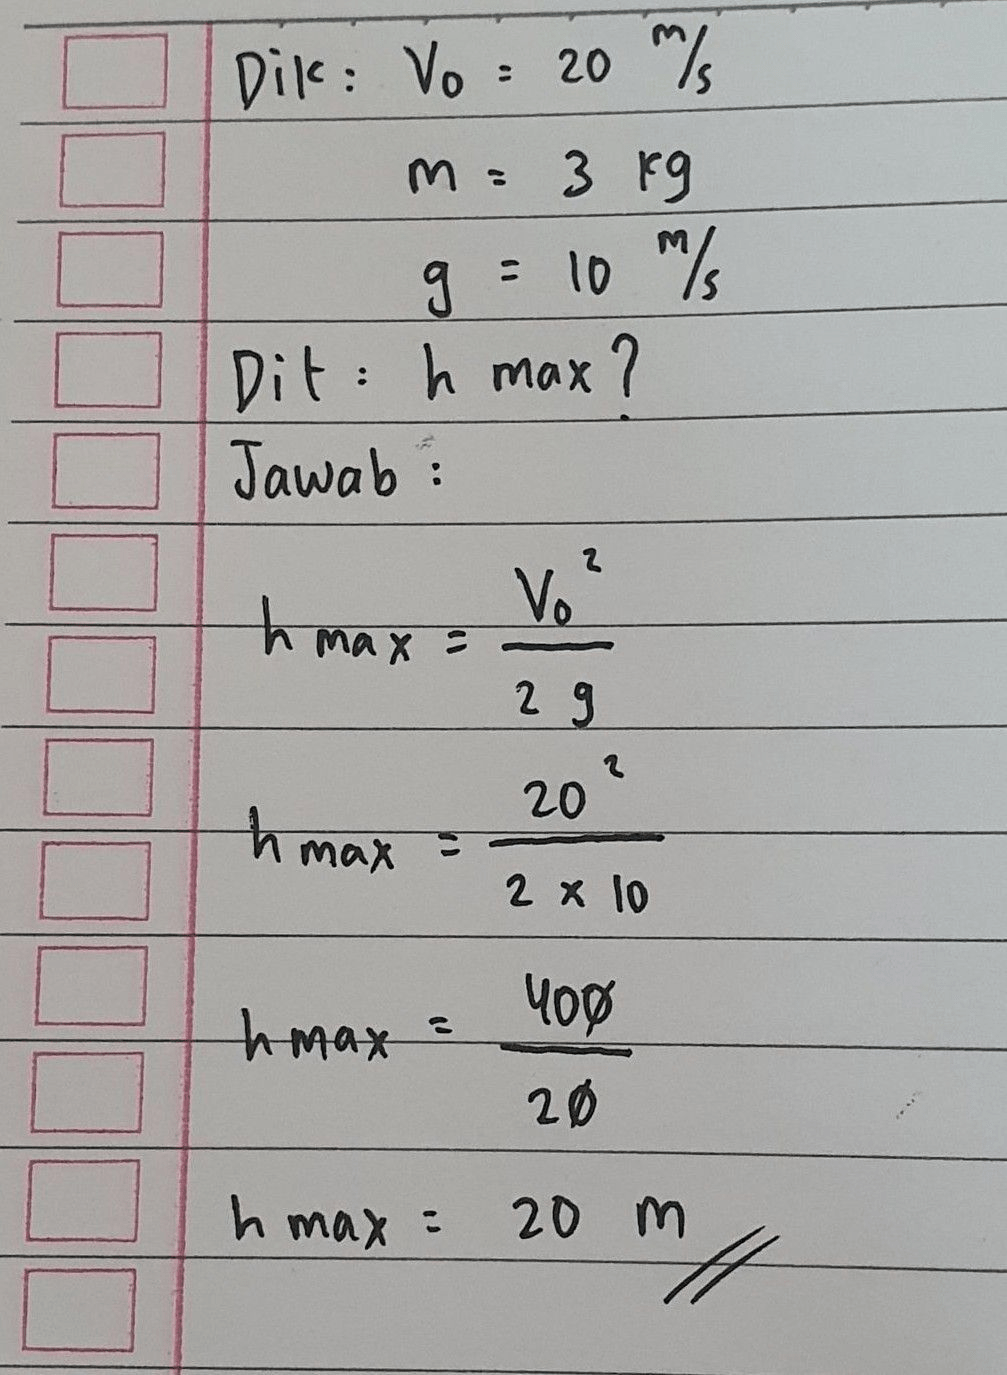 Dik : V₀ = 20 m/s
m = 3 kg
g = 10 m/s
Dit : h max ?
Jawab :
h max = V₀² / 2 g
h max = 20² / 2 x 10
h max = 400 / 20
h max = 20 m //